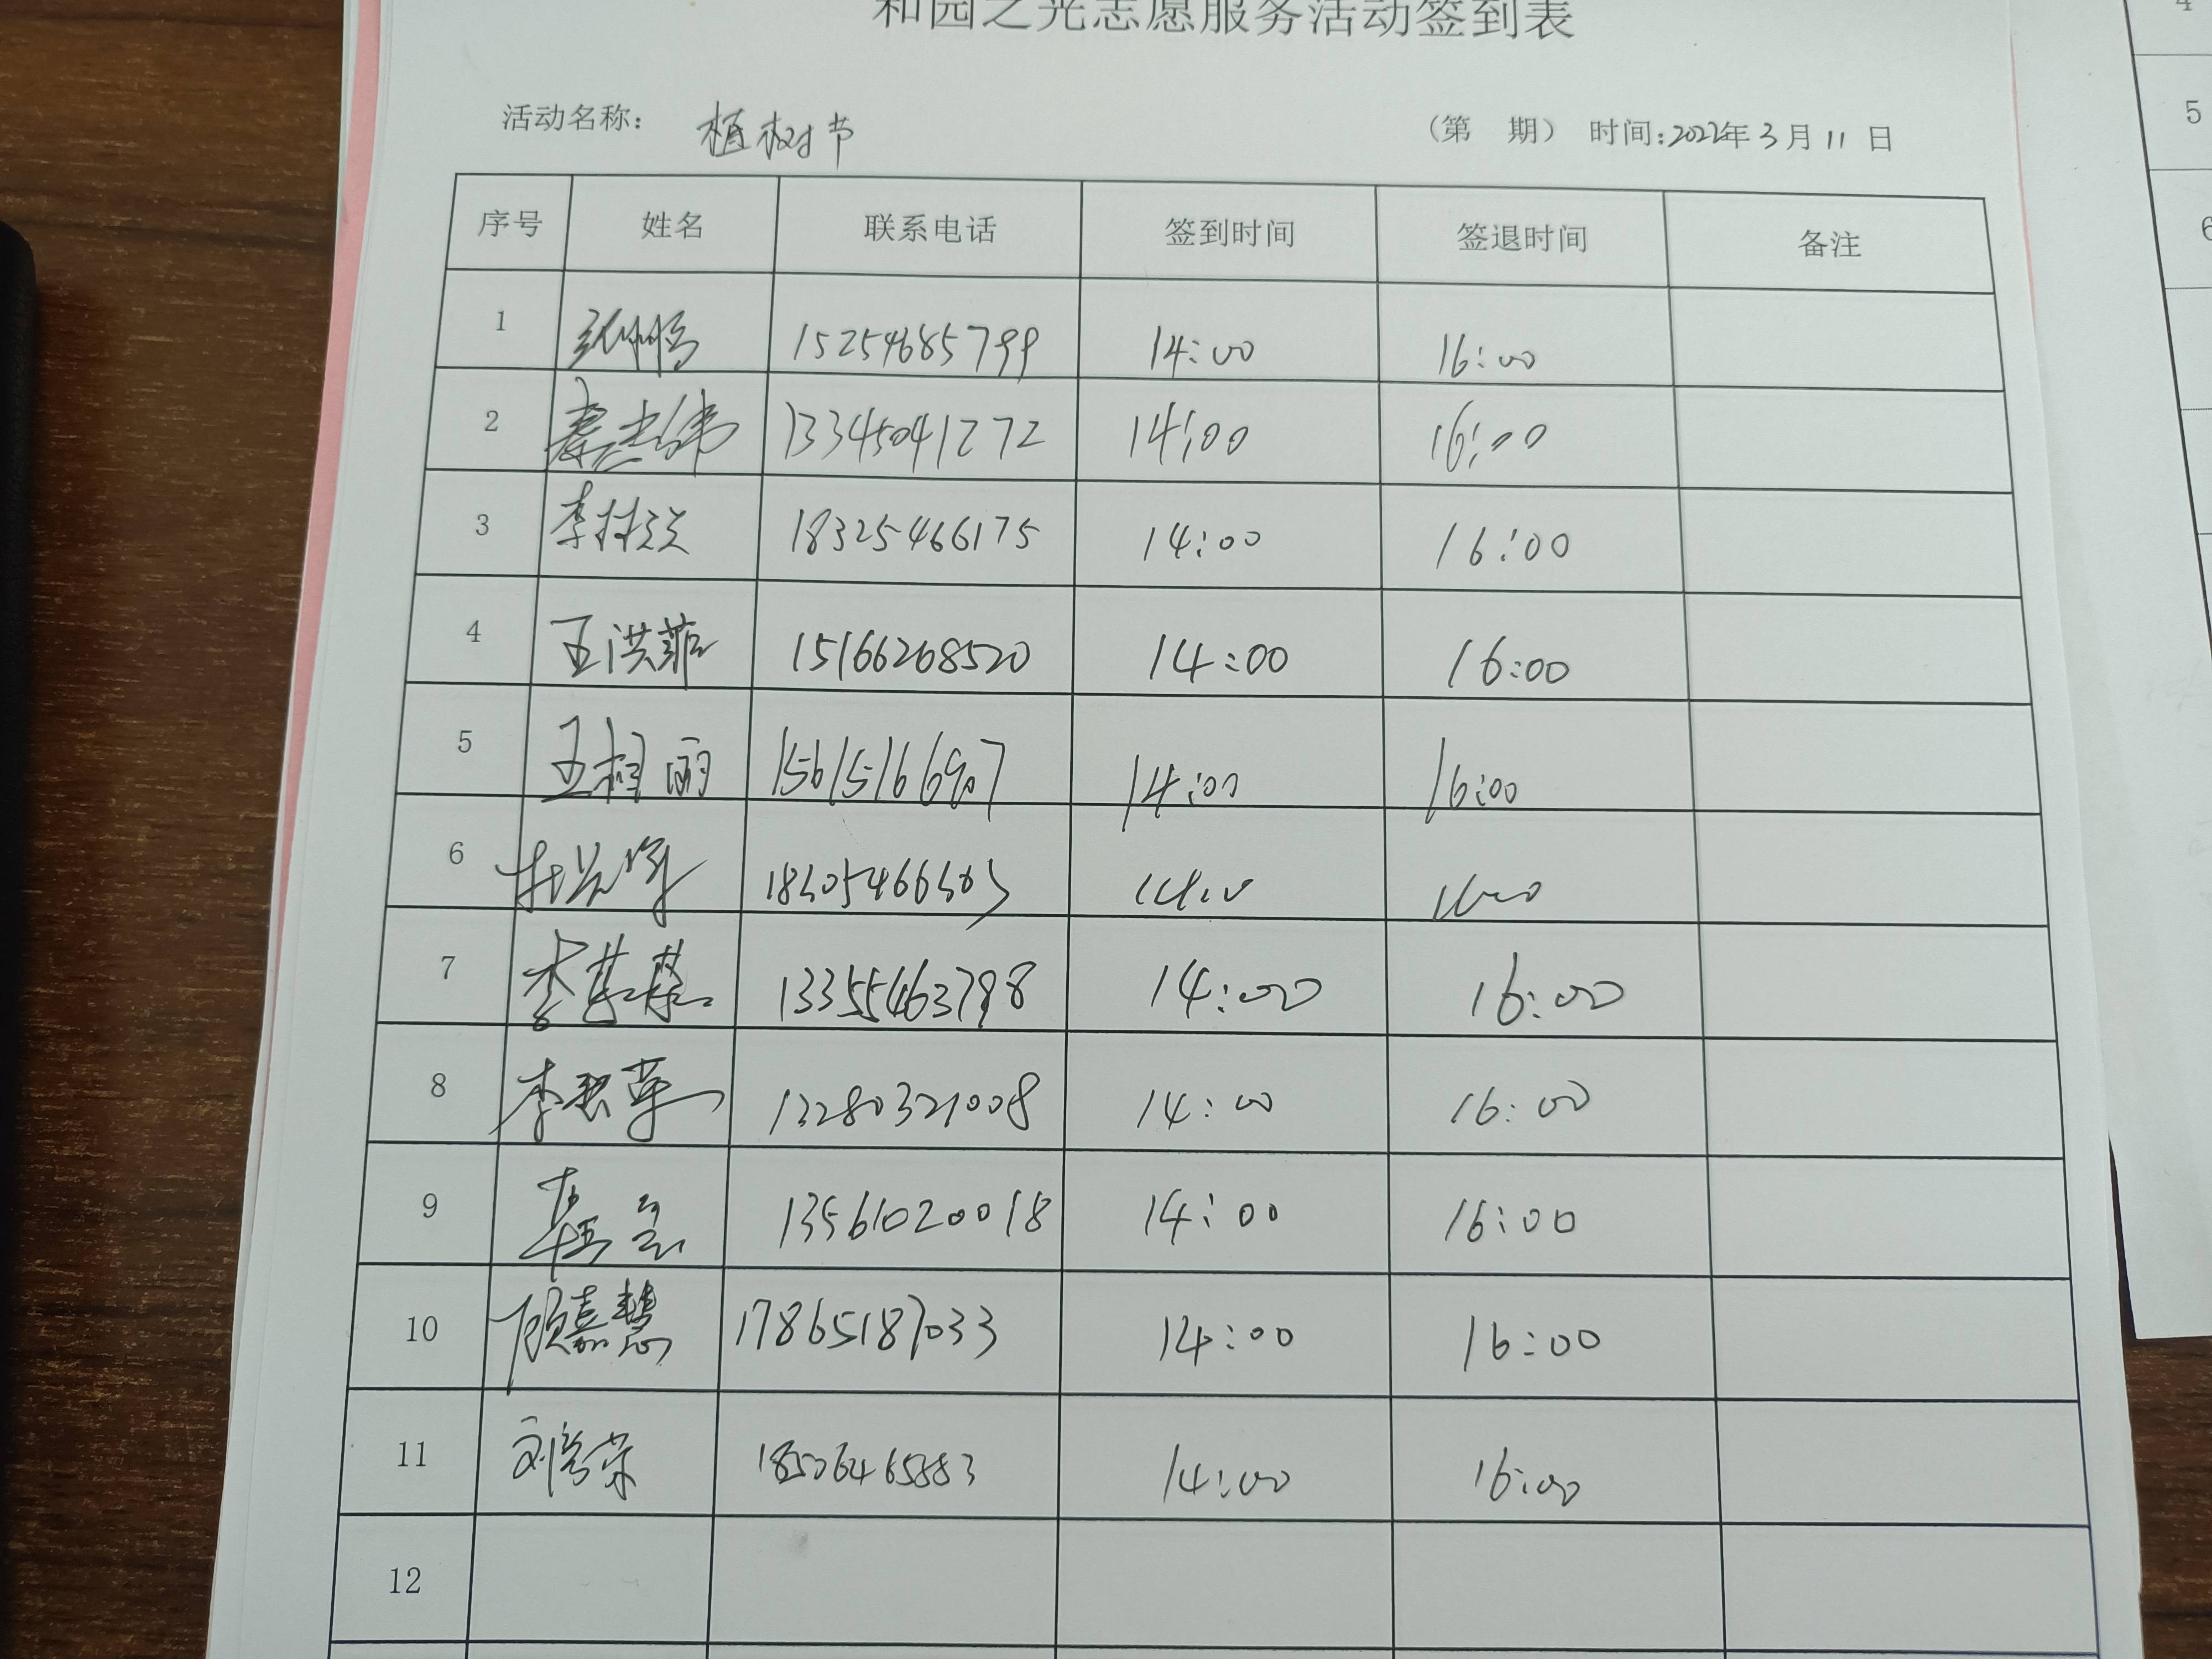 和园之光志愿服务活动签到表
活动名称: 植树节 (第 期) 时间:2022年3月11日
序号 姓名 联系电话 签到时间 签退时间 备注
1 15254685799 14:00 16:00
2 13345041272 14:00 16:00
3 李林 18325466175 14:00 16:00
4 王洪菲 15166268520 14:00 16:00
5 王相丽 15615166907 14:00 16:00
6
7 李 13355463798 14:00 16:00
8 李 13280321008 14:00 16:00
9 13561020018 14:00 16:00
10 顾嘉慧 17865187033 14:00 16:00
11 刘 荣 14:00 16:00
12
4
5
6